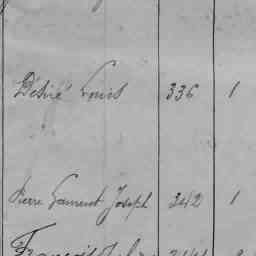 Désiré Louis 336 1
Pierre Laurent Joseph 342 1
François